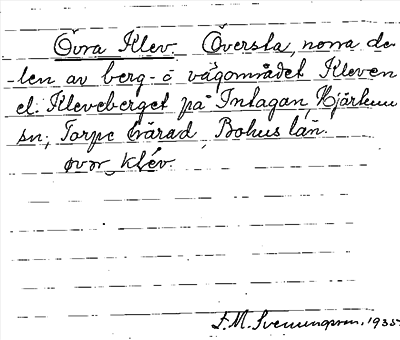 Övra Klev. Översta, norra de-
-len av berg- o vägområdet Kleven
el. Kleveberget på Intagan, Hjärtum
sn; Torpe härad, Bohus län.
øvər klév.
F.M. Svenungsson. 1935